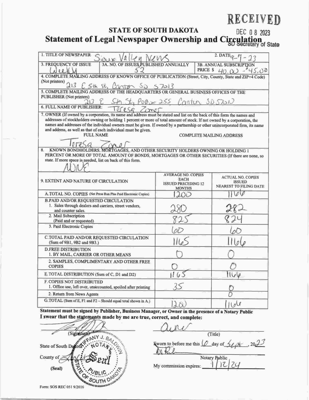 RECEIVED
DEC 08 2023
SD Secretary of State
STATE OF SOUTH DAKOTA
Statement of Legal Newspaper Ownership and Circulation
1. TITLE OF NEWSPAPER
Sioux Valley News
2. DATE
3. FREQUENCY OF ISSUE
Weekly
5A. NO. OF ISSUES PUBLISHED ANNUALLY
52
5B. ANNUAL SUBSCRIPTION
PRICE $
4. COMPLETE MAILING ADDRESS OF KNOWN OFFICE OF PUBLICATION (Street, City, County, State and ZIP+4 Code)
(Not printers)
213 E 5th St, Canton SD 57013
5. COMPLETE MAILING ADDRESS OF THE HEADQUARTERS OR GENERAL BUSINESS OFFICES OF THE
PUBLISHER (Not printer)
213 E 5th St, PO Box 255 Canton SD 57013
6. FULL NAME OF PUBLISHER:
7. OWNER (If owned by a corporation, its name and address must be stated and list on the back of this form the names and
addresses of stockholders owning or holding 1 percent or more of total amount of stock. If not owned by a corporation, the
names and addresses of the individual owners must be given. If owned by a partnership or other unincorporated firm, its name
and address, as well as that of each individual must be given.
FULL NAME
COMPLETE MAILING ADDRESS
8. KNOWN BONDHOLDERS, MORTGAGES, AND OTHER SECURITY HOLDERS OWNING OR HOLDING 1
PERCENT OR MORE OF TOTAL AMOUNT OF BONDS, MORTGAGES OR OTHER SECURITIES (If there are none, so
state. If more space is needed, list on back of this form.
9. EXTENT AND NATURE OF CIRCULATION
AVERAGE NO. COPIES
EACH
ISSUED PRECEDING 12
MONTHS
ACTUAL NO. COPIES
ISSUED
NEAREST TO FILING DATE
A. TOTAL NO. COPIES (Net Press Run Plus Paid Electronic Copies)
1200
1166
B. PAID AND/OR REQUESTED CIRCULATION
1. Sales through dealers and carriers, street vendors,
and counter sales.
280
282
2. Mail Subscription
(Paid and/or requested)
825
824
3. Paid Electronic Copies
60
60
C. TOTAL PAID AND/OR REQUESTED CIRCULATION
(Sum of 9B1, 9B2 and 9B3.)
1165
1166
D. FREE DISTRIBUTION
1. BY MAIL, CARRIER OR OTHER MEANS
0
0
2. SAMPLES, COMPLIMENTARY AND OTHER FREE
COPIES
0
0
E. TOTAL DISTRIBUTION (Sum of C, D1 and D2)
1165
1166
F. COPIES NOT DISTRIBUTED
1. Office use, left over, unaccounted, spoiled after printing
35
0
2. Return from News Agents
0
0
G. TOTAL (Sum of E, F1 and F2 - Should equal total shown in A.)
1200
1166
Statement must be signed by Publisher, Business Manager, or Owner in the presence of a Notary Public
I swear that the statements made by me are true, correct, and complete:
Owner
(Signature)
(Title)
State of South Dakota
County of
(Seal)
Sworn to before me this 6 day of Sept 2023
Notary Public
My commission expires:
NOTARY
Seal
PUBLIC
SOUTH DAKOTA
Form: SOS REC 051 9/2016